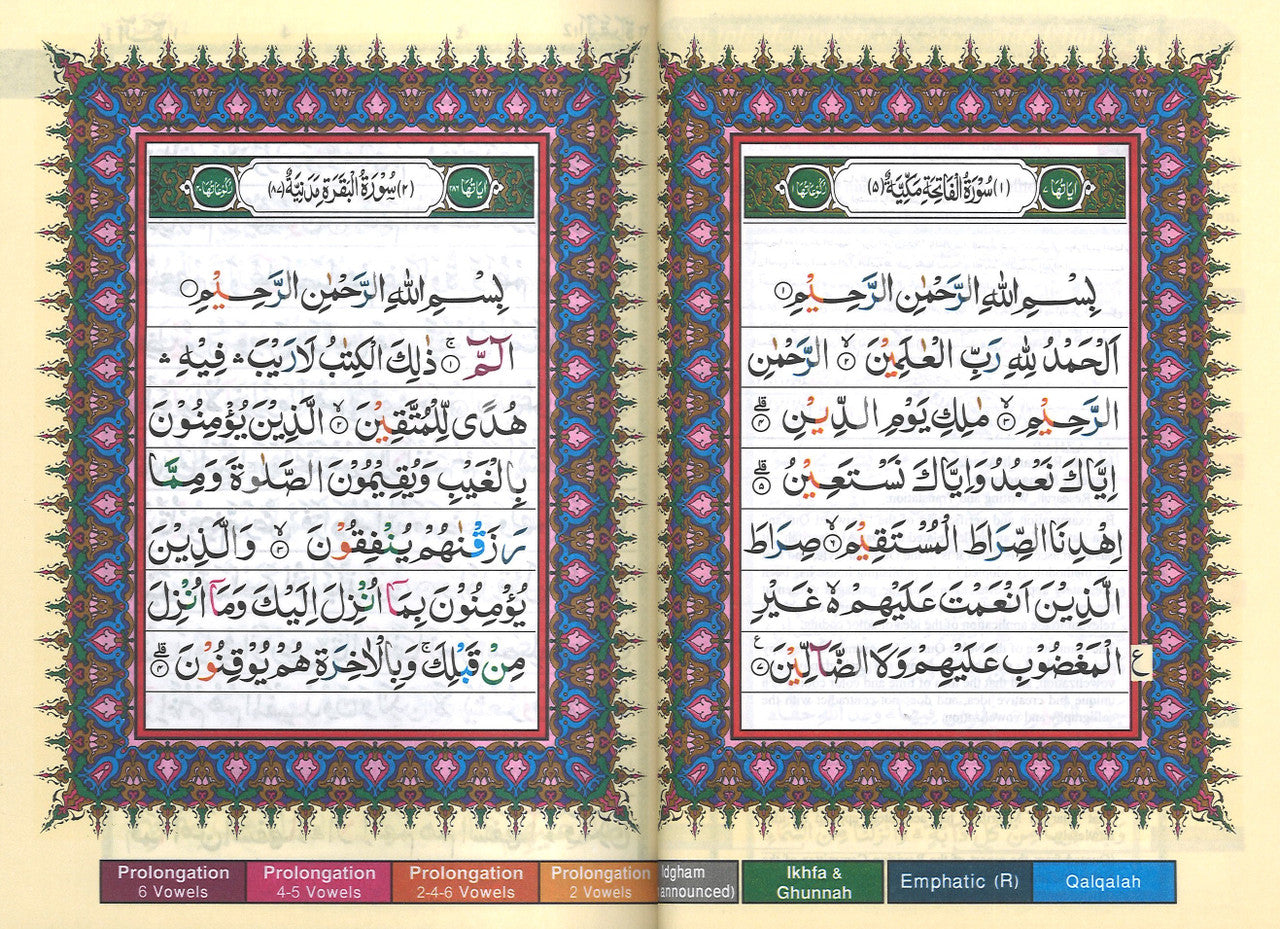 اٰيَاتُهَا ٧ (١) سُوْرَةُ الْفَاتِحَةِ مَكِّيَّةٌ (٥) رُكُوْعَاتُهَا ١
بِسْمِ اللهِ الرَّحْمٰنِ الرَّحِيْمِ ١
اَلْحَمْدُ لِلّٰهِ رَبِّ الْعٰلَمِيْنَ ۙ ٢ الرَّحْمٰنِ
الرَّحِيْمِ ۙ ٣ مٰلِكِ يَوْمِ الدِّيْنِ ؕ ٤
اِيَّاكَ نَعْبُدُ وَاِيَّاكَ نَسْتَعِيْنُ ؕ ٥
اِهْدِنَا الصِّرَاطَ الْمُسْتَقِيْمَ ۙ ٦ صِرَاطَ
الَّذِيْنَ اَنْعَمْتَ عَلَيْهِمْ ۙ ٥ غَيْرِ
الْمَغْضُوْبِ عَلَيْهِمْ وَلَا الضَّآلِّيْنَ ٧ ع
ع
اٰيَاتُهَا ٢٨٦ (٢) سُوْرَةُ الْبَقَرَةِ مَدَنِيَّةٌ (٨٧) رُكُوْعَاتُهَا ٤٠
بِسْمِ اللهِ الرَّحْمٰنِ الرَّحِيْمِ
الٓمّٓ ۚ ١ ذٰلِكَ الْكِتٰبُ لَا رَيْبَ ۛ فِيْهِ ۛ
هُدًى لِّلْمُتَّقِيْنَ ۙ ٢ الَّذِيْنَ يُؤْمِنُوْنَ
بِالْغَيْبِ وَيُقِيْمُوْنَ الصَّلٰوةَ وَمِمَّا
رَزَقْنٰهُمْ يُنْفِقُوْنَ ۙ ٣ وَالَّذِيْنَ
يُؤْمِنُوْنَ بِمَآ اُنْزِلَ اِلَيْكَ وَمَآ اُنْزِلَ
مِنْ قَبْلِكَ ۚ وَبِالْاٰخِرَةِ هُمْ يُوْقِنُوْنَ ؕ ٤
Prolongation 6 Vowels
Prolongation 4-5 Vowels
Prolongation 2-4-6 Vowels
Prolongation 2 Vowels
Idgham announced)
Ikhfa & Ghunnah
Emphatic (R)
Qalqalah